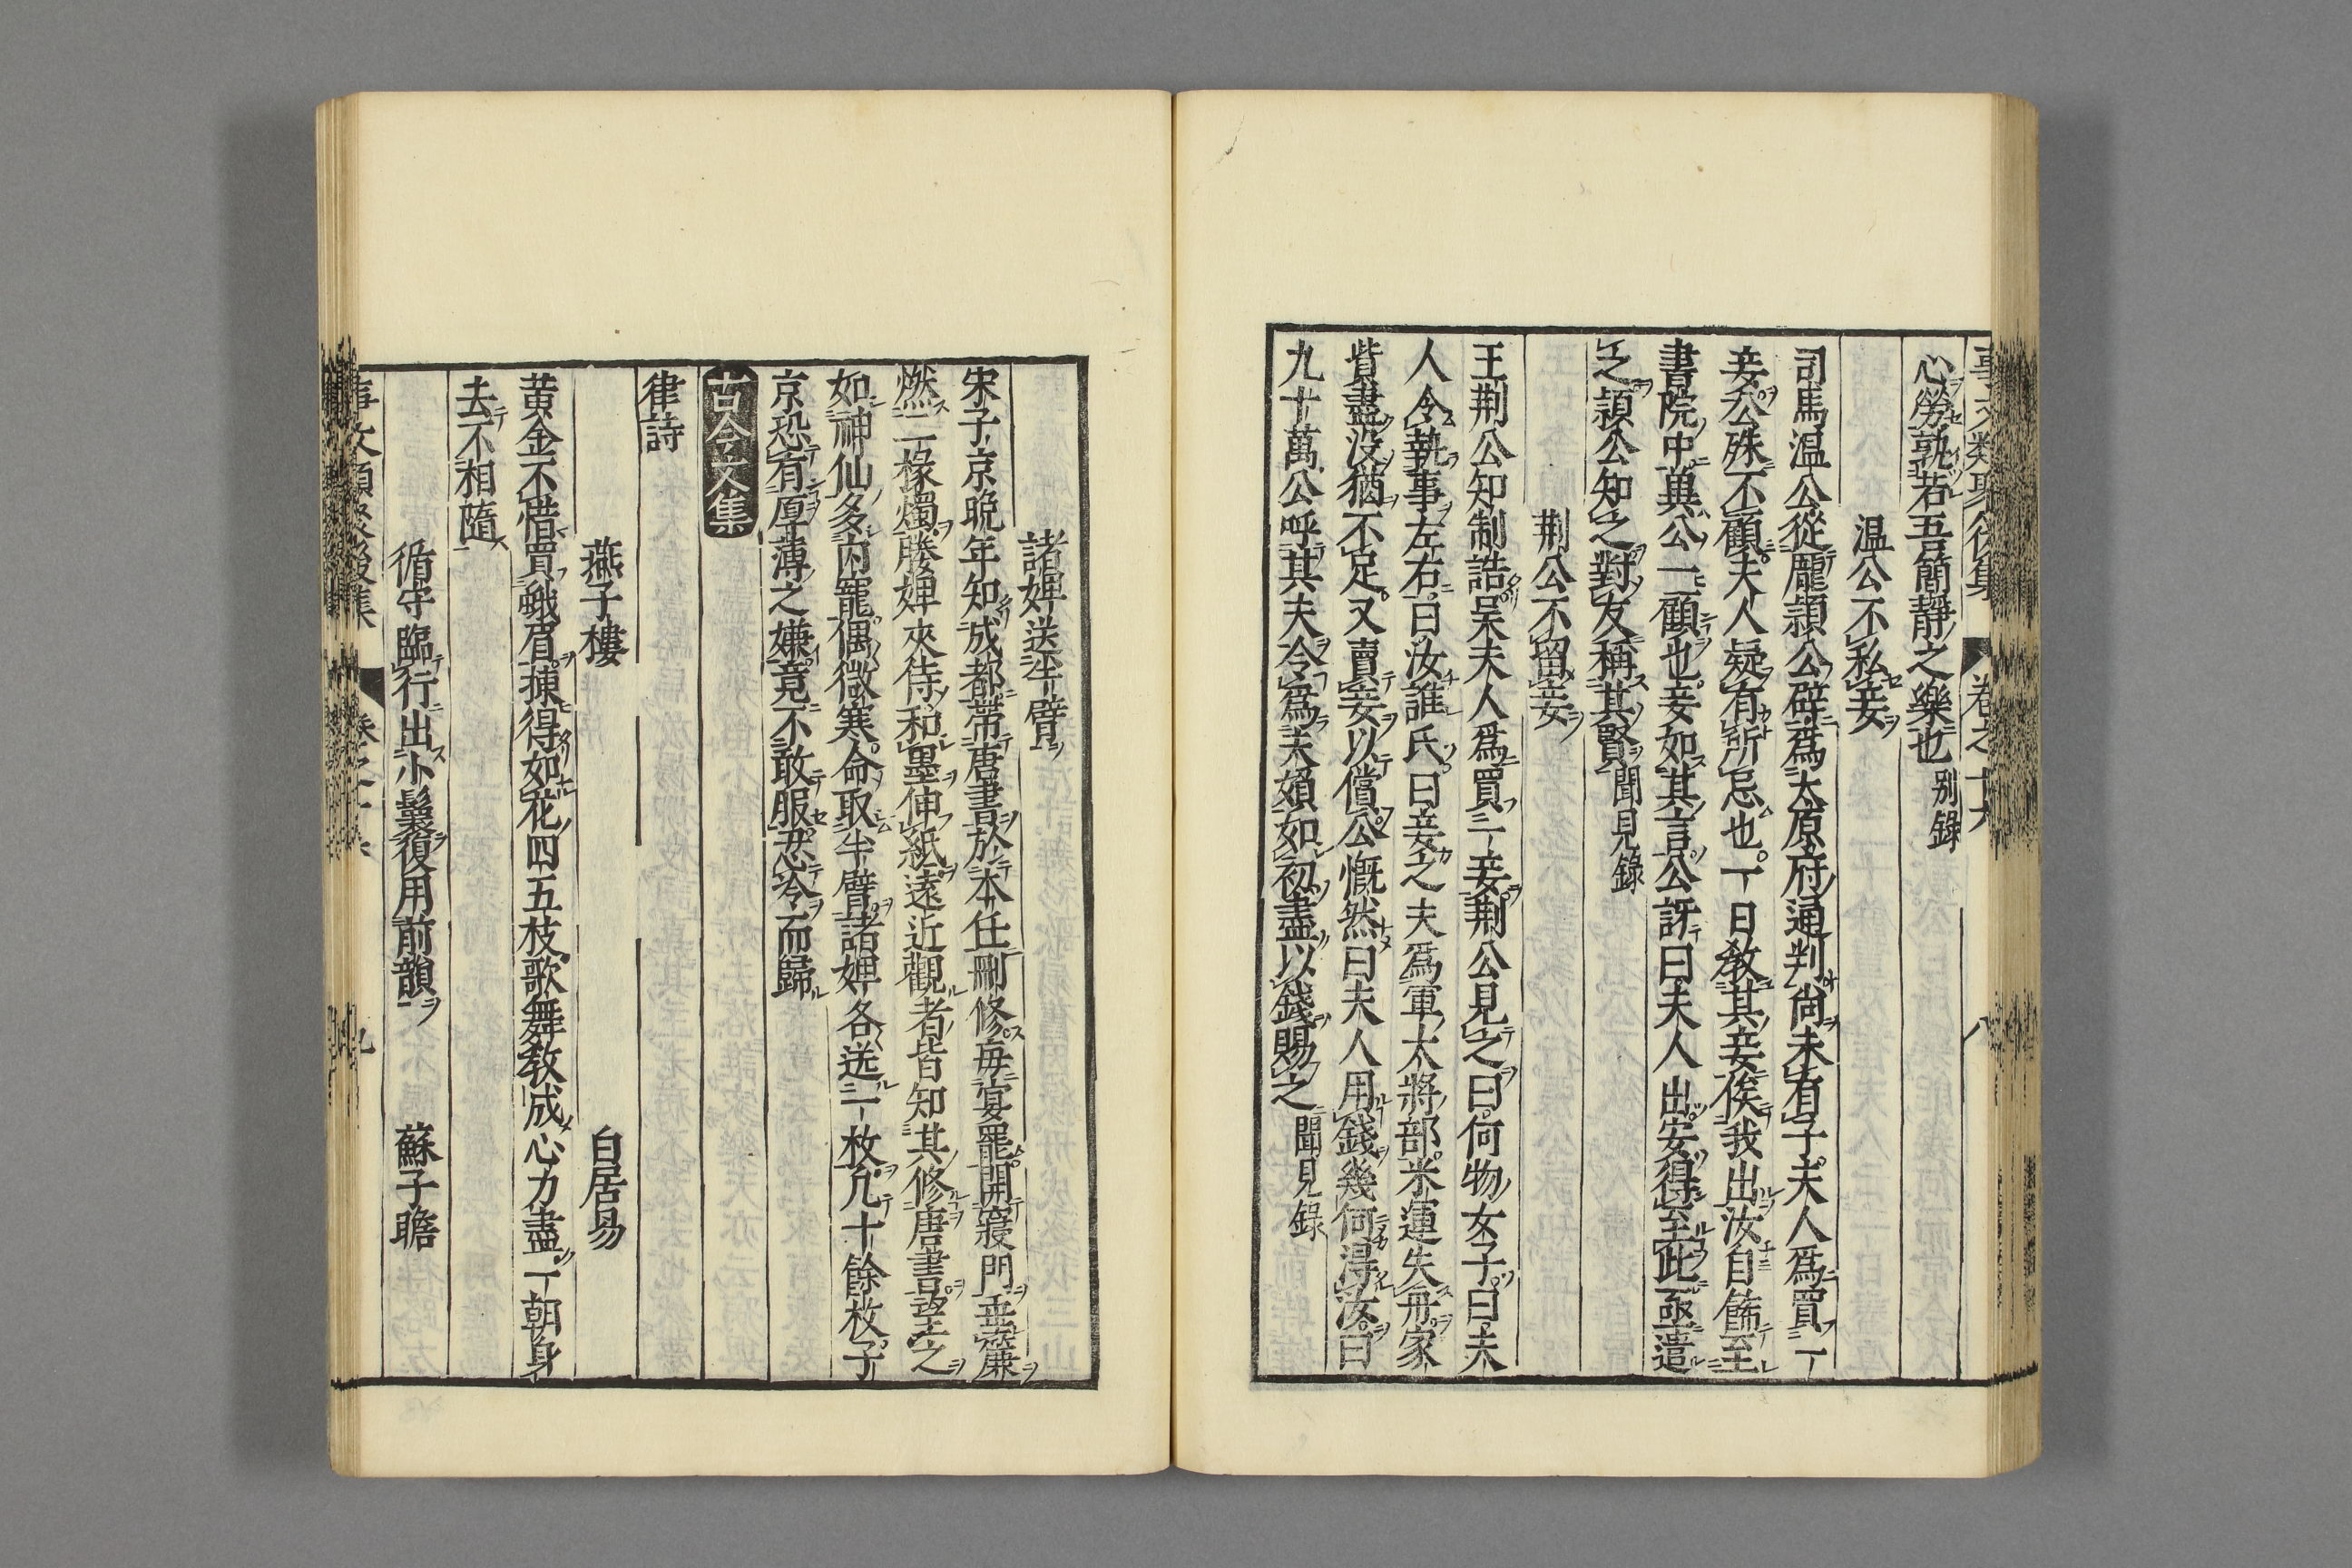 事文類聚後集 卷之十六 八
心勞孰若吾簡靜之樂也 別錄
温公不私妾
司馬温公從龐頴公辟爲太原府通判尚未有子夫人爲買一
妾公殊不顧夫人疑有所忌也一日教其妾俟我出汝自飾至
書院中兾公一顧也妾如其言公訝曰夫人出安得至此亟遣
之頴公知之對友稱其賢 聞見錄
荆公不留妾
王荆公知制誥吴夫人爲買一妾荆公見之曰何物女子曰夫
人令執事左右曰汝誰氏曰妾之夫爲軍大將部米運失舟家
貲盡没猶不足又賣妾以償公慨然曰夫人用錢幾何得汝曰
九十萬公呼其夫令爲夫婦如初盡以錢賜之 聞見錄
諸婢送半臂
宋子京晚年知成都帶唐書於本任刪修毎宴罷開寢門垂簾
燃二椽燭媵婢夾侍和墨伸紙遠近觀者皆知其修唐書望之
如神仙多内寵偶微寒命取半臂諸婢各送一枚凢十餘枚子
京恐有厚薄之嫌竟不敢服忍冷而歸
古今文集
律詩
燕子樓 白居易
黄金不惜買蛾眉揀得如花四五枝歌舞教成心力盡一朝身
去不相隨
循守臨行出小鬟復用前韻 蘇子瞻
事文類聚後集 卷之十六 九